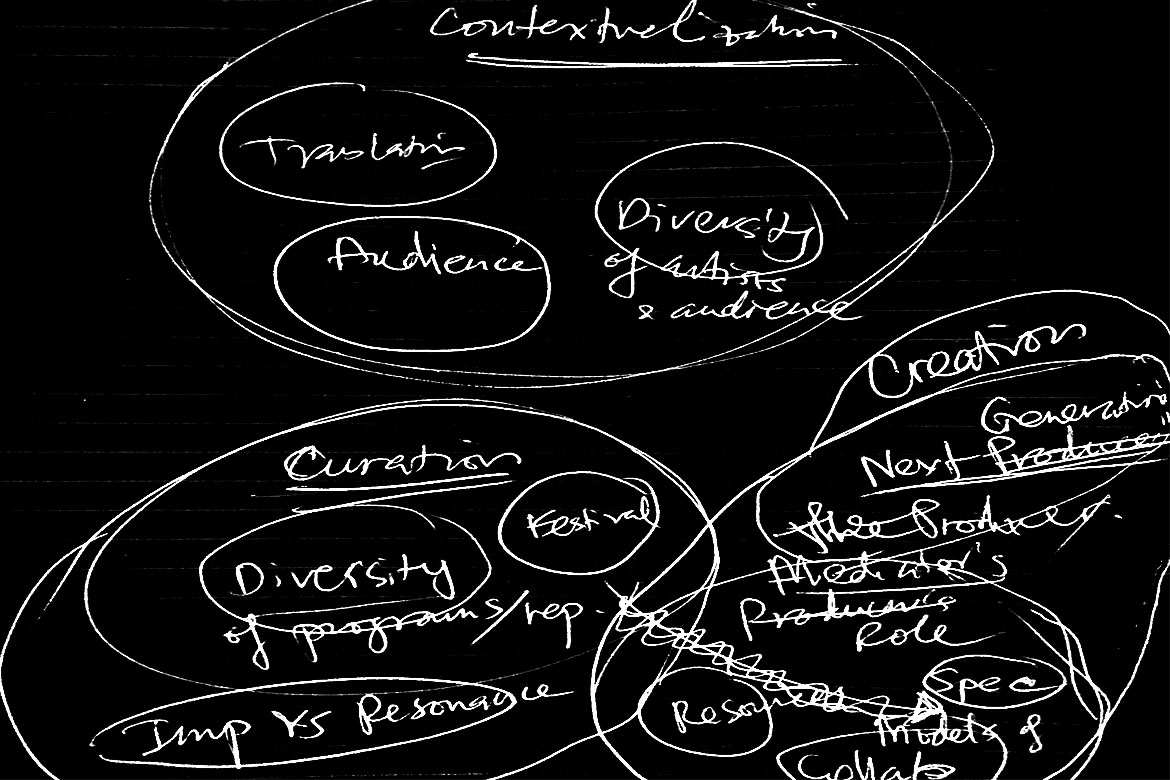 Contextualization
Translation
Audience
Diversity
of artists
& audience
Creation
Generation
Next Producer
the Producer.
Mediator's
Producer's
Role
Curation
Festival
Diversity
of programs/rep.
Imp Vs Resonance
Resources
Spec
Models of
Collab